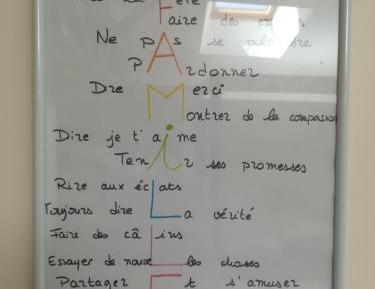 La Fête
Faire des
Ne pAs se plaindre
PArdonner
Dire Merci
Montrer de la compassion
Dire je t'aime
Tenir ses promesses
Rire aux écLats
Toujours dire La vérité
Faire des câLins
Essayer de nouveLles choses
Partager Et s'amuser